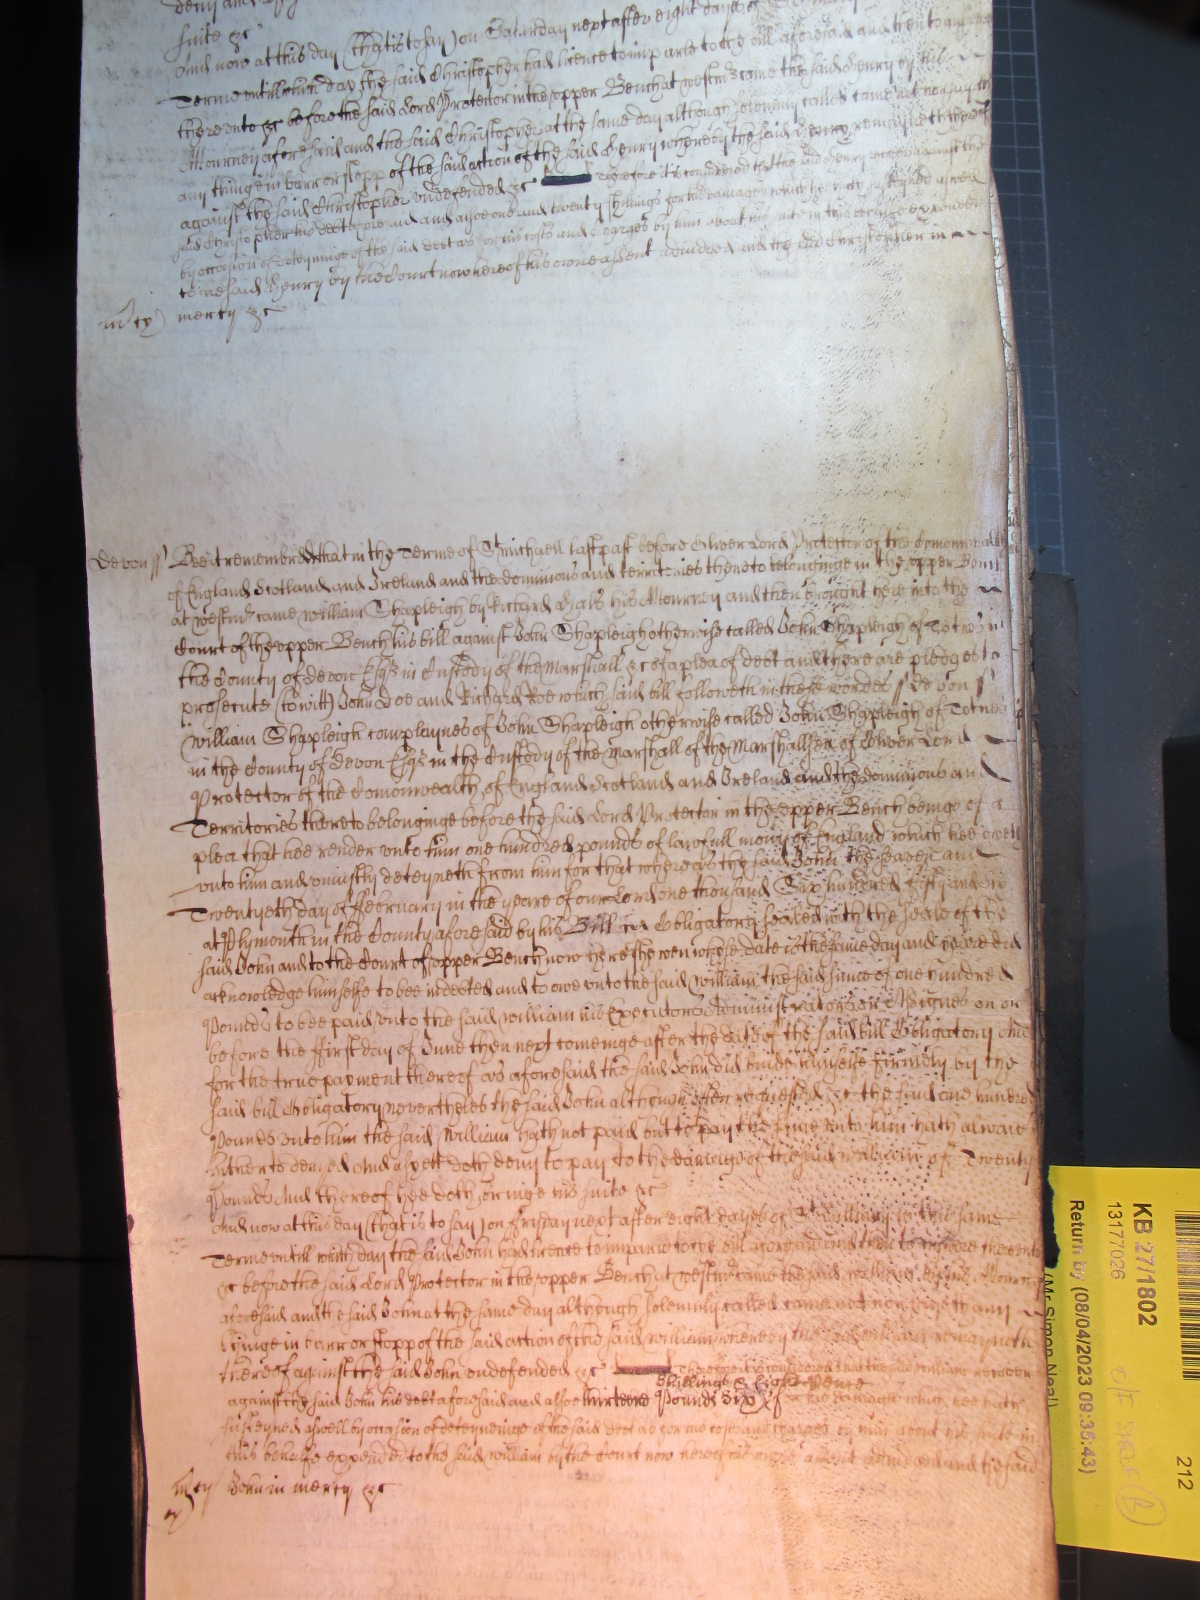 suite &c
And now at this day (that is to say) on Saturday next after eight dayes of
Terme untill which day the said Christopher had licence to imparle to the bill aforesaid and then to answere
thereunto &c before the said Lord Protector in the upper Bench at westmr came the said Henry by his
Attourney aforesaid and the said Christopher at the same day although solemnly called came not nor sayeth
any thinge in barr or stopp of the said action of the said Henry whereby the said Henry remayneth thereof
against the said Christopher undefended &c Therefore it is considered that the said Henry recover against the
said Christopher his debt aforesaid and alsoe one and twenty shillings for his damages which he hath susteyned aswell
by occasion of deteyninge of the said debt as for his costs and charges by him about his suite in this behalfe expended
to the said Henry by the Court now here of his owne assent adiudged and the said Christopher in
mercy &c
Devon ss Bee it remembred that in the Terme of St michaell last past before Oliver Lord Protector of the Comonwealth
of England Scotland and Ireland and the dominions and territories thereto belonginge in the upper Bench
at westmr came william Shapleigh by Richard Hals his Attourney and then brought here into the
Court of the upper Bench his bill against John Shapleigh otherwise called John Shapleigh of Totnes in
the County of devon Esqr in Custody of the Marshall &c of a plea of debt and there are pledges to
prosecute (to witt) John Doe and Richard Roe which said bill followeth in these wordes ss Devon ss
william Shapleigh complaynes of John Shapleigh otherwise called John Shapleigh of Totnes
in the County of Devon Esqr in the Custody of the Marshall of the Marshallsea of Oliver Lord
Protector of the Comonwealth of England Scotland and Ireland and the dominions and
Territories thereto belonginge before the said Lord Protector in the upper Bench beinge of a
plea that hee render unto him one hundred pounds of lawfull mony of England which hee oweth
unto him and uniustly deteyneth from him for that whereas the said John the seaven and
Twentyeth day of ffebruary in the yeare of our Lord one thousand Six hundred fifty and
at Plymouth in the County aforesaid by his Bill Obligatory sealed with the seale of the
said John and to the Court of upper Bench now here shewen whose date is the same day and yeare did
acknowledge himselfe to bee indebted and to owe unto the said William the said summe of one hundred
Pounds to bee paid unto the said william his Executors Administrators or Assignes on or
before the ffirst day of June then next comeinge after the date of the said bill Obligatory And
for the true payment thereof as aforesaid the said John did binde himselfe firmely by the
said bill Obligatory nevertheles the said John although often requested &c the said one hundred
Pounds unto him the said william hath not paid but to pay the same unto him hath alwaies
hitherto denied And as yett doth deny to pay to the damage of the said william of Twenty
Pounds And thereof hee doth bringe his suite &c
And now at this day (that is to say) on ffryday next after eight dayes of St Hillary in this same
Terme untill which day the said John had licence to imparle to the bill aforesaid and then to answere thereunto
&c before the said Lord Protector in the upper Bench at westmr came the said william by his Attourney
aforesaid and the said John at the same day although solemnly called came not nor sayeth any
thinge in barr or stopp of the said action of the said william whereby the said william remayneth
thereof against the said John undefended &c Therefore it is considered that the said william recover
Shillings & Eight Pence
against the said John his debt aforesaid and alsoe thirteene Pounds Six for his damages which hee hath
susteyned aswell by occasion of deteyninge of the said debt as for his costs and charges by him about his suite in
this behalfe expended to the said william by the Court now here of his owne assent adiudged and the said
John in mercy &c
KB 27/1802
13177026
Return by (08/04/2023 09:35:43)
(Mr Simon Neal)
212